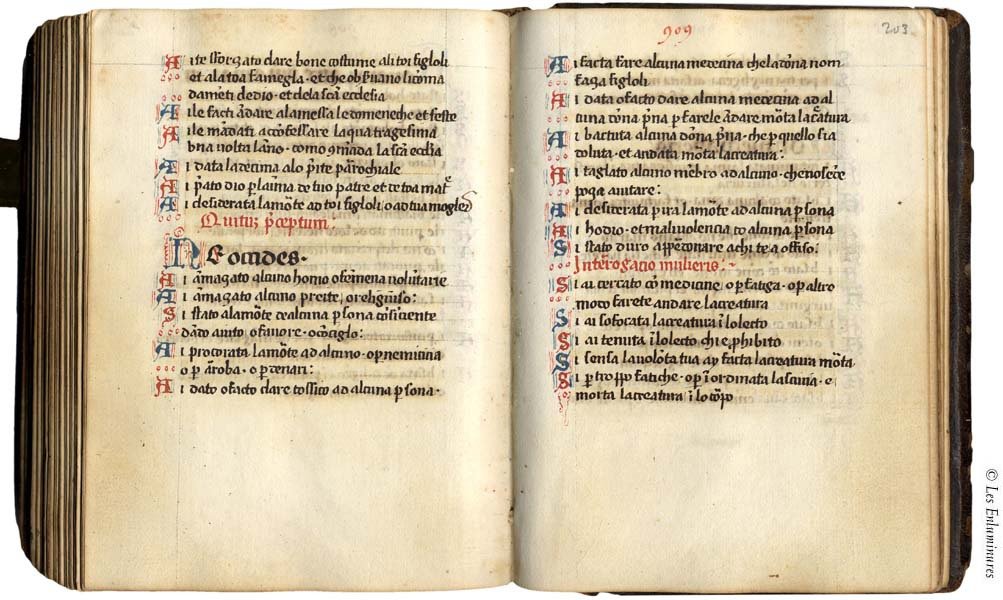 Ai te sforzato dare bone costume ali toi figloli
et ala toa famegla · et che obſuano li coma
dameti de dio · et dela scā ecclesia
Ai le facti ādare ala messa le domeneche et feste
Ai le mādati a cōfessare la quatragesima
una volta lāno · como 9māda la scā eccīa
Ai data la decima alo p̄ite parochiale
Ai p̄ato dio p̱ laīma de tuo patre et de toa mat̄
Ai desiderata la mōte ad toi figloli o ad tua mogle
Quītuʒ p̄ceptum ·
NE occides ·
Ai āmazato alcuno homo o femena volūtarie
Ai āmazato alcuno preite, o religiuso:
Si stato ala mōte de alcuna p̱sona cōsciente
dādo aiuto o favore · o cōsiglo:
Ai procorata la mōte ad alcuno · op̱ nemicitia
o p̱ āroba · o p̱ denari:
Ai dato o facto dare tossico ad alcuna p̱sona ·
909
203
Ai facta fare alcuna medecina che la dōna nom
faza figloli
Ai data o facto dare alcuna medecina ad al
cuna dōna p̄na p̱ farele ādare mōta la c̄atura
Ai bactuta alcuna dōna p̄na · che p̱ quello sia
doluta · et andata mōta la creatura:
Ai taglato alcuno mēbro ad alcuno · che nō sēce
poza aiutare:
Ai desiderata p̱ ira la mōte ad alcuna p̱sona
Ai hodio · et malivolencia cō alcuna p̱sona
Si stato duro a p̱donare a chi te a offiso:
Interrogacio mulieris: ~
Si ai cercato cō medicine · o p̱ fatiga · o p̱ altro
modo farete andare la creatura
Si ai sofocata la creatura ī lo lecto
Si ai tenuta ī lo lecto chi e, phibito
Si sensa la volōta tua ay facta la creatura mōta ·
Si p̱ troppo fatiche · o p̱ īordinata lascivia · e
morta la creatura ī lo cōrpo
© Les Enluminures